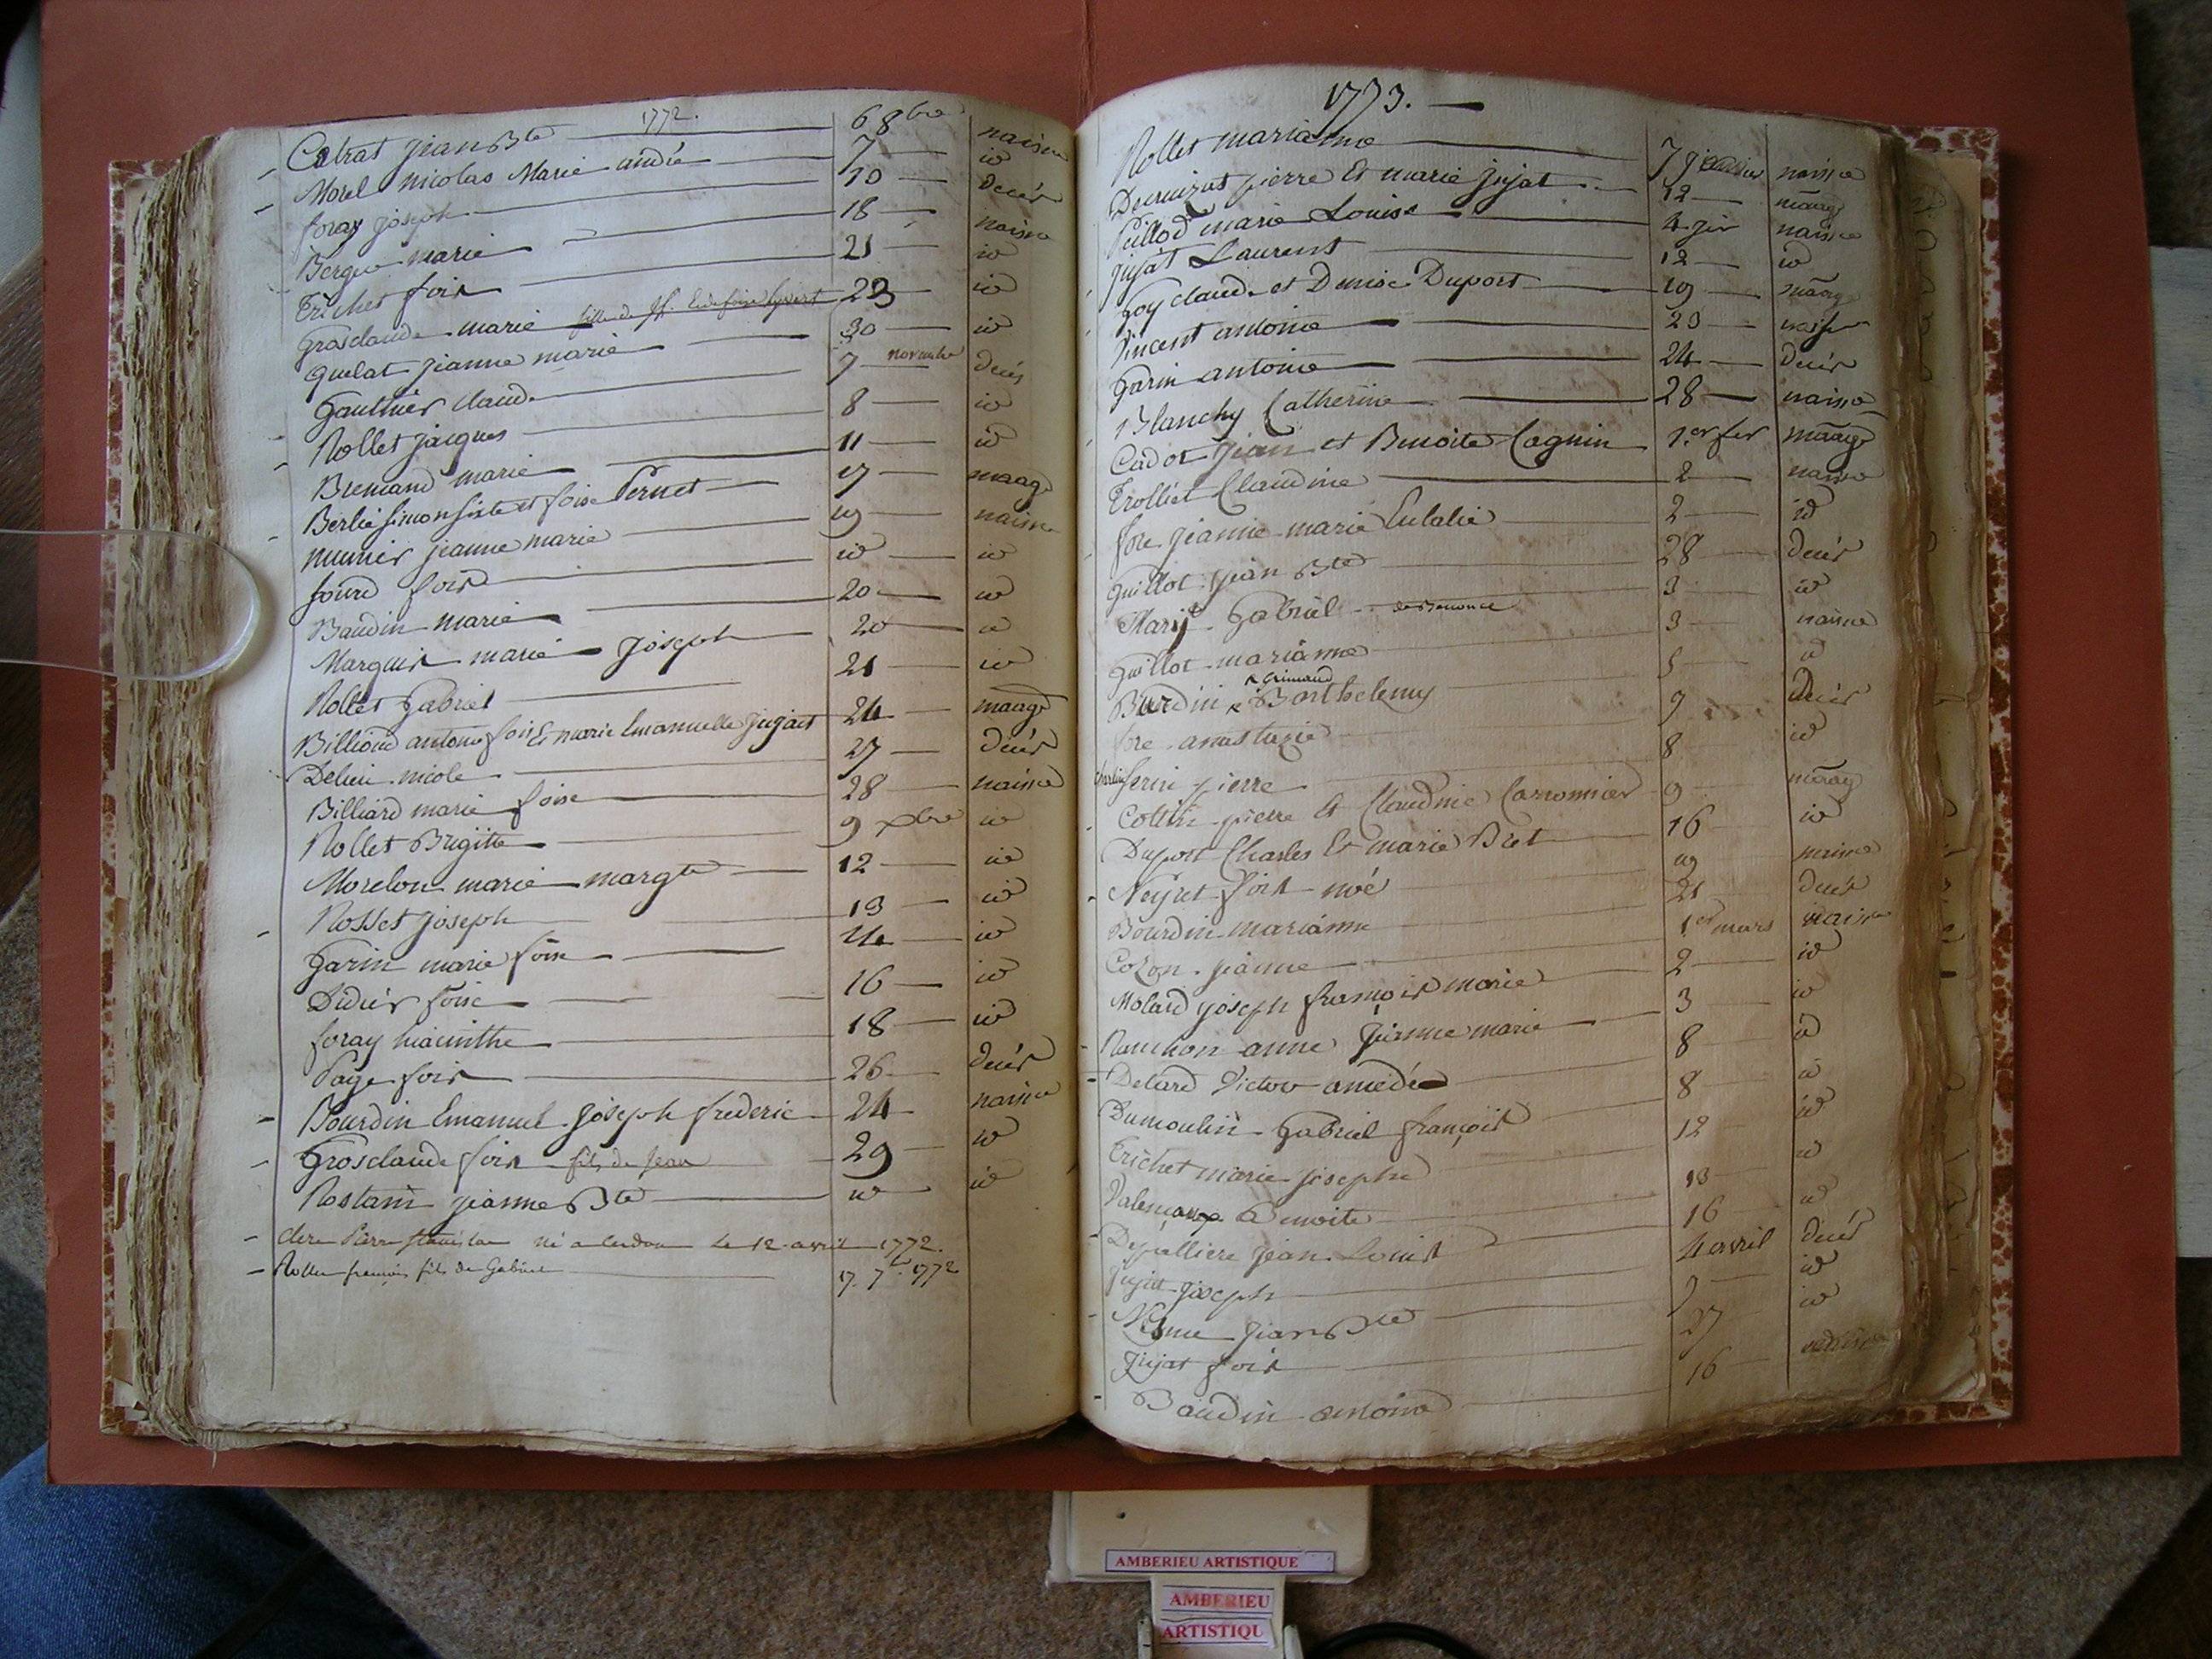 1772.
Calrat jean Bte 6 8bre naisce
Morel Nicolas Marie andré 7 id
foray joseph 10 decés
Bergue marie 18 naisce
Trichet fois 21 id
Grosclaude marie fille de 23 id
Quelat jeanne marie 30 id
Gauthier claude 7 novembre decés
Rollet jacques 8 id
Bremand marie 11 id
Berlié Simon et foise Pernet 17 maage
munier jeanne marie 19 naisce
fois id id
Baudin marie 20 id
Marquis marie joseph 20 id
Rollet Gabriel 21 id
Billioud antoine fois Et marie Emanuelle jujat 24 maage
nicole 27 decés
Billiard marie foise 28 naisce
Rollet Brigitte 9 xbre id
Morelon marie margte 12 id
Rosset joseph 13 id
Garin marie foise 14 id
Didier foise 16 id
foray hiacinthe 18 id
Page fois 26 decés
Bourdin Emanuel joseph frederic 24 naisce
Grosclaude fois fils de Jean 29 id
Rostain jeanne Bte id id
Pierre stanislas né a cerdon Le 12 avril 1772.
Rollet françois fils de Gabriel 17. 7bre 1772
1773.
Rollet marianne 7 janvier naisce
pierre Et marie jujat 12 maage
Peillod marie Louise 4 naisce
jujat Laurent 12 id
Goy claude et Denise Duport 19 maage
Vincent antoine 23 naisce
Garin antoine 24 decés
Blanchy Catherine 28 naisce
Cadot jean et Benoite Cagnin 1.er fer maage
Trolliet Claudine 2 naisce
fore jeanne marie Eulalie 2 id
Guillot jean Bte 28 decés
Gabriel 3 id
Guillot marianne 3 naisce
Burdin Barthelemy 5 id
fore anastazie 9 decés
pierre 8 id
Collin pierre Et Claudine 9 maage
Duport Charles Et marie Bret 16 id
Neyret fois noé 19 naisce
Bourdin marianne 21 decés
Cozon jeanne 1.er mars naisce
Molard joseph françois marie 2 id
anne jeanne marie 3 id
Delard Victor amedée 8 id
Dumoulin Gabriel françois 8 id
Trichet marie josephe 12 id
Benoite 13 id
jean Louis 16 id
jujat joseph 4 avril decés
jean Bte 9 id
jujat fois 27 id
Baudin antoine 16 naisce
AMBERIEU ARTISTIQUE
AMBERIEU
ARTISTIQU